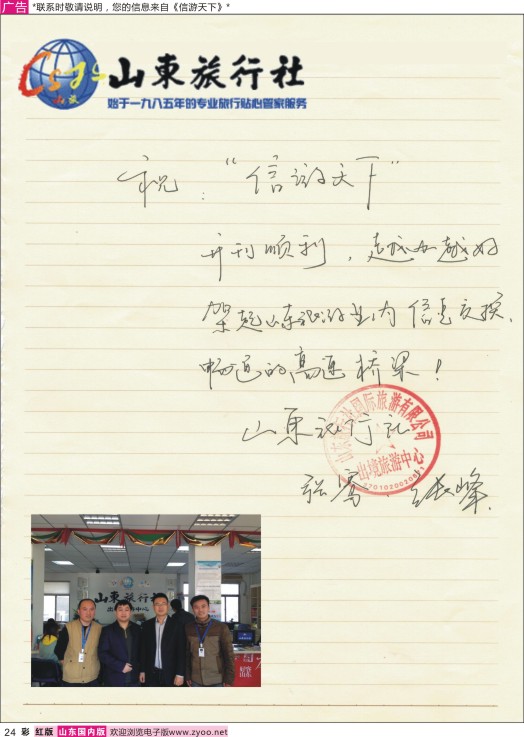 广告 *联系时敬请说明，您的信息来自《信游天下》*
CSTS 山东旅行社
山旅 始于一九八五年的专业旅行贴心管家服务
祝："信游天下"
开刊顺利，越办越好
架起山东旅游业内信息交换、
畅通的高速桥梁！
山东旅行社
国际旅游有限公司
出境旅游中心
张骞、张峰
山東旅行社
出境旅游中心
24 彩 红版 山东国内版 欢迎浏览电子版www.zyoo.net